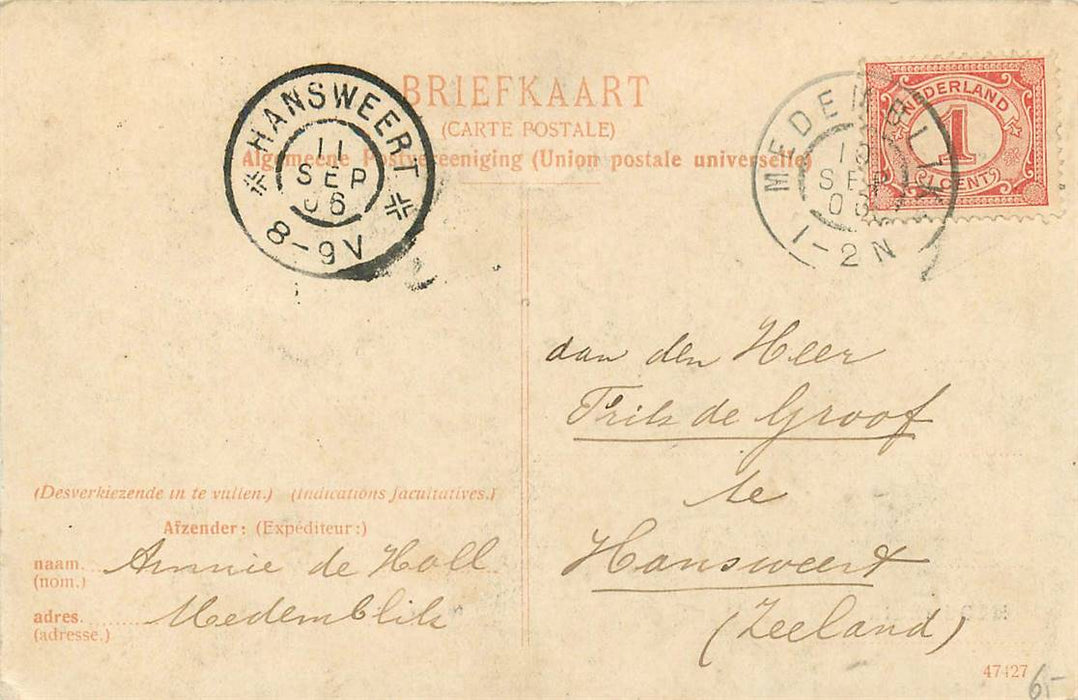 BRIEFKAART
(CARTE POSTALE)
Algemeene Postvereeniging (Union postale universelle)
HANSWEERT
11
SEP
06
8-9V
MEDEMBLIK
10
SEP
06
1-2N
NEDERLAND
1
1 CENT
aan den Heer
Frits de Groof
te
Hansweert
(Zeeland)
(Desverkiezende in te vullen.) (Indications facultatives.)
Afzender: (Expéditeur:)
naam. Annie de Holl
(nom.)
adres. Medemblik
(adresse.)
47427
6,-